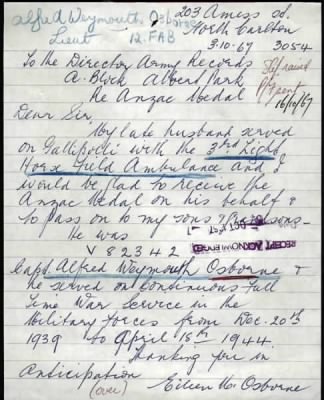 Alfred Weymouth Osborne
Lieut 12.FAB
203 Amess St.
North Carlton
3.10.67 3054
To the Director Army Records
A. Block Albert Park
Re Anzac Medal
16/10/67
Dear Sir,
My late husband served
on Gallipoli with the 3rd Light
Horse Field Ambulance and I
would be glad to receive the
Anzac Medal on his behalf &
to pass on to my sons &
He was
RECEIPT ACKNOWLEDGED
V 82342
Capt Alfred Weymouth Osborne &
he served on continuous Full
Time War Service in the
Military Forces from Dec. 20th
1939 to April 18th 1944.
Thanking you in
Anticipation
(over) Eileen M. Osborne